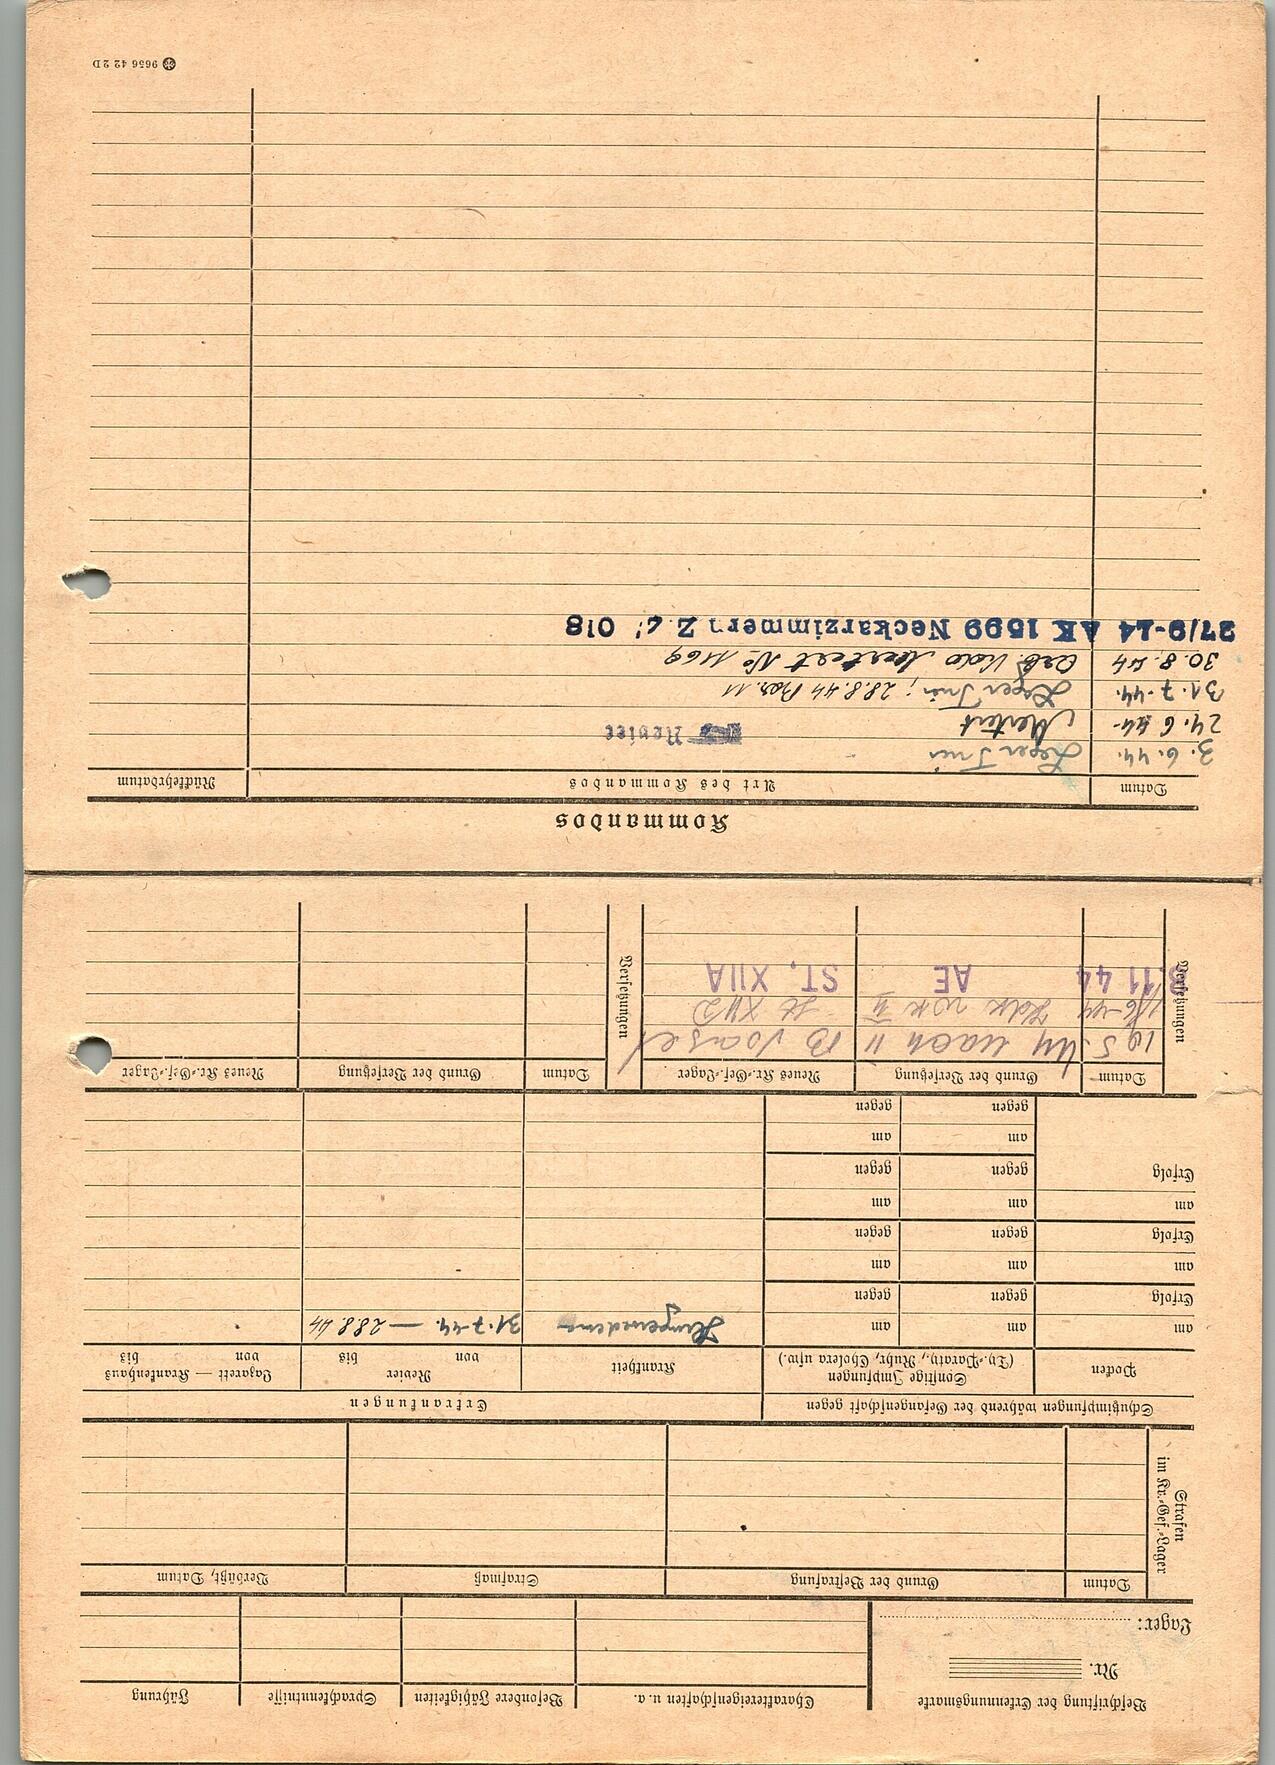 Beschriftung der Erkennungsmarke
Nr.
Lager:
Charaktereigenschaften u. a.
Besondere Fähigkeiten
Sprachkenntnisse
Führung
Strafen
im Kr.-Gef.-Lager
Datum
Grund der Bestrafung
Strafmaß
Verbüßt, Datum
Schutzimpfungen während der Gefangenschaft gegen
Erkrankungen
Pocken
Sonstige Impfungen
(Ty.-Paraty., Ruhr, Cholera usw.)
Krankheit
Revier
von bis
Lazarett — Krankenhaus
von bis
am am am 31.7.44. — 28.8.44
Erfolg gegen gegen
am am am
Erfolg gegen gegen
am am am
Erfolg gegen gegen
am am
gegen gegen
Versetzungen
Datum Grund der Versetzung Neues Kr.-Gef.-Lager
II B
St XII D
3.11 44 AE ST. XIIA
Versetzungen
Datum Grund der Versetzung Neues Kr.-Gef.-Lager
Kommandos
Datum Art des Kommandos Rückkehrdatum
3. 6. 44. Lager Trier
24. 6 44 Mertert Revier
31. 7. 44. Lager Trier; 28.8.44 Bar. 11
30. 8. 44 Arb. Kdo Mertert No 1169
27/9-44 AK 1599 Neckarzimmern
9656 42 2D